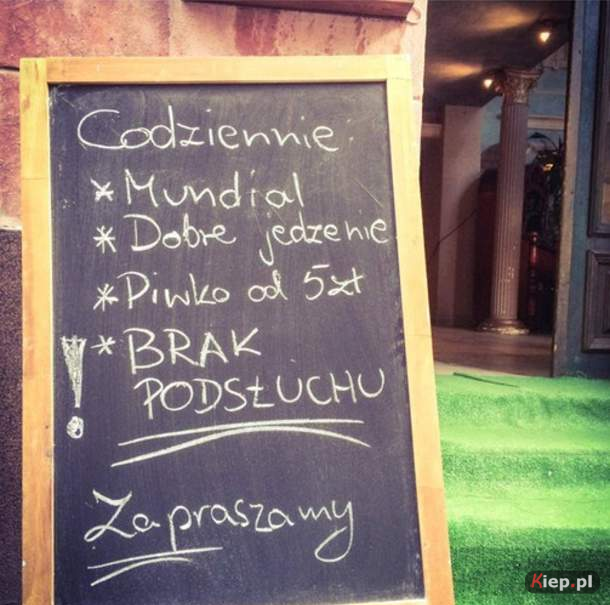 Codziennie:
* Mundial
* Dobre jedzenie
* Piwko od 5zł
! * BRAK
PODSŁUCHU
Zapraszamy
Kiep.pl